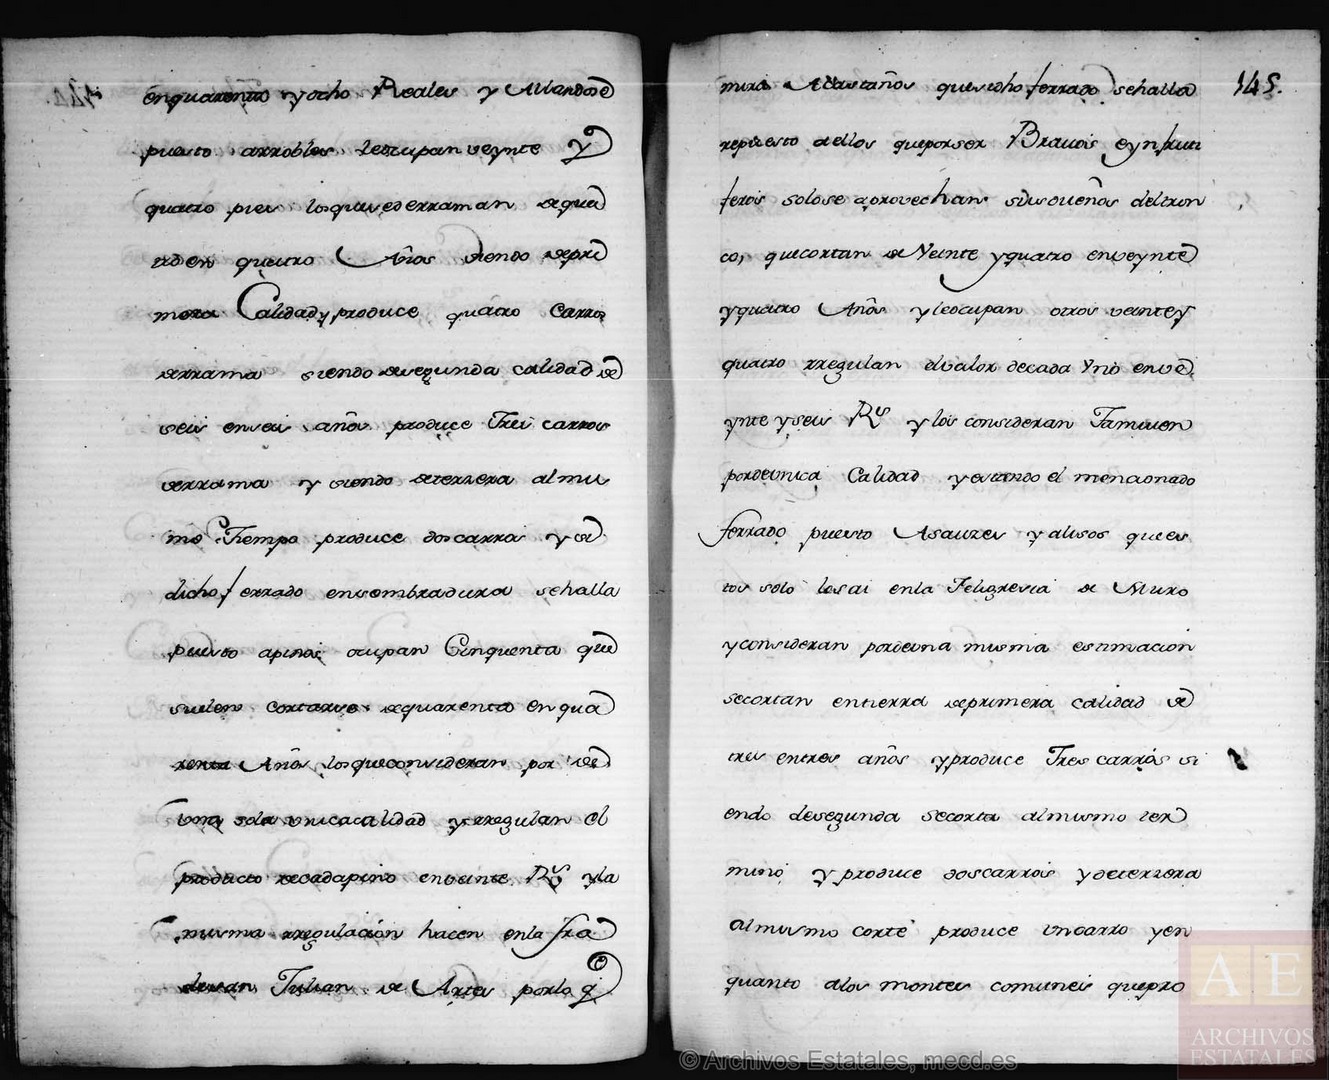 enquarenta yocho Reales y Allandose
puesto arrobles leocupan veynte y
quatro pies losquesederraman dequa
troen quatro Años siendo depri
mera Calidad y produce quatro Carros
derrama siendo desegunda calidad de
seis enseis años produce Tres carros
derrama y siendo deterzera almis
mo Tiempo produce doscarros y si
dicho ferrado ensembradura sehalla
puesto apinos ocupan Cinquenta que
suelen cortarse dequarenta enqua
renta Años losqueconsideran por de
una sola unicacalidad yrregulan el
producto decadapino enveinte Rs yla
misma rregulación hacen enla fra
desan Julian de Artes porlo q
mira Acastaños quesidho ferrado sehalla
145.
repuesto dellos queporser Bravos eynfruti
feros solose aprovechan susdueños deltron
co, quecortan de Veinte yquatro enveynte
yquatro Años yleocupan otros veintey
quatro rregulan elvalor decada Vno enve
ynte yseis Rs ylos consideran Tamvien
pordeunica Calidad yestando el mencionado
ferrado puesto Asauzes yalisos quees
tos solo lesai enla Feligresia de Muro
yconsideran pordeuna misma estimacion
secortan entierra deprimera calidad de
tres entres años yproduce Trescarros si
endo desegunda secorta almismo ter
mino y produce doscarros ydeterzera
almismo corte produce uncarro yen
quanto alos montes comunes quepro
© Archivos Estatales, mecd.es
AE
ARCHIVOS
ESTATALES